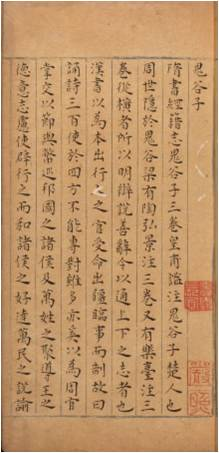 鬼谷子
隋書經籍志鬼谷子三卷皇甫謐注鬼谷子楚人也
周世隱於鬼谷梁有陶弘景注三卷又有樂臺注三
卷從橫者所以明辯說善辭令以通上下之志者也
漢書以為本出行人之官受命出疆臨事而制故曰
誦詩三百使於四方不能專對雖多亦奚以為周官
掌交以節與幣巡邦國之諸侯及萬姓之聚導王之
德意志慮使辟行之而和諸侯之好達萬民之說諭